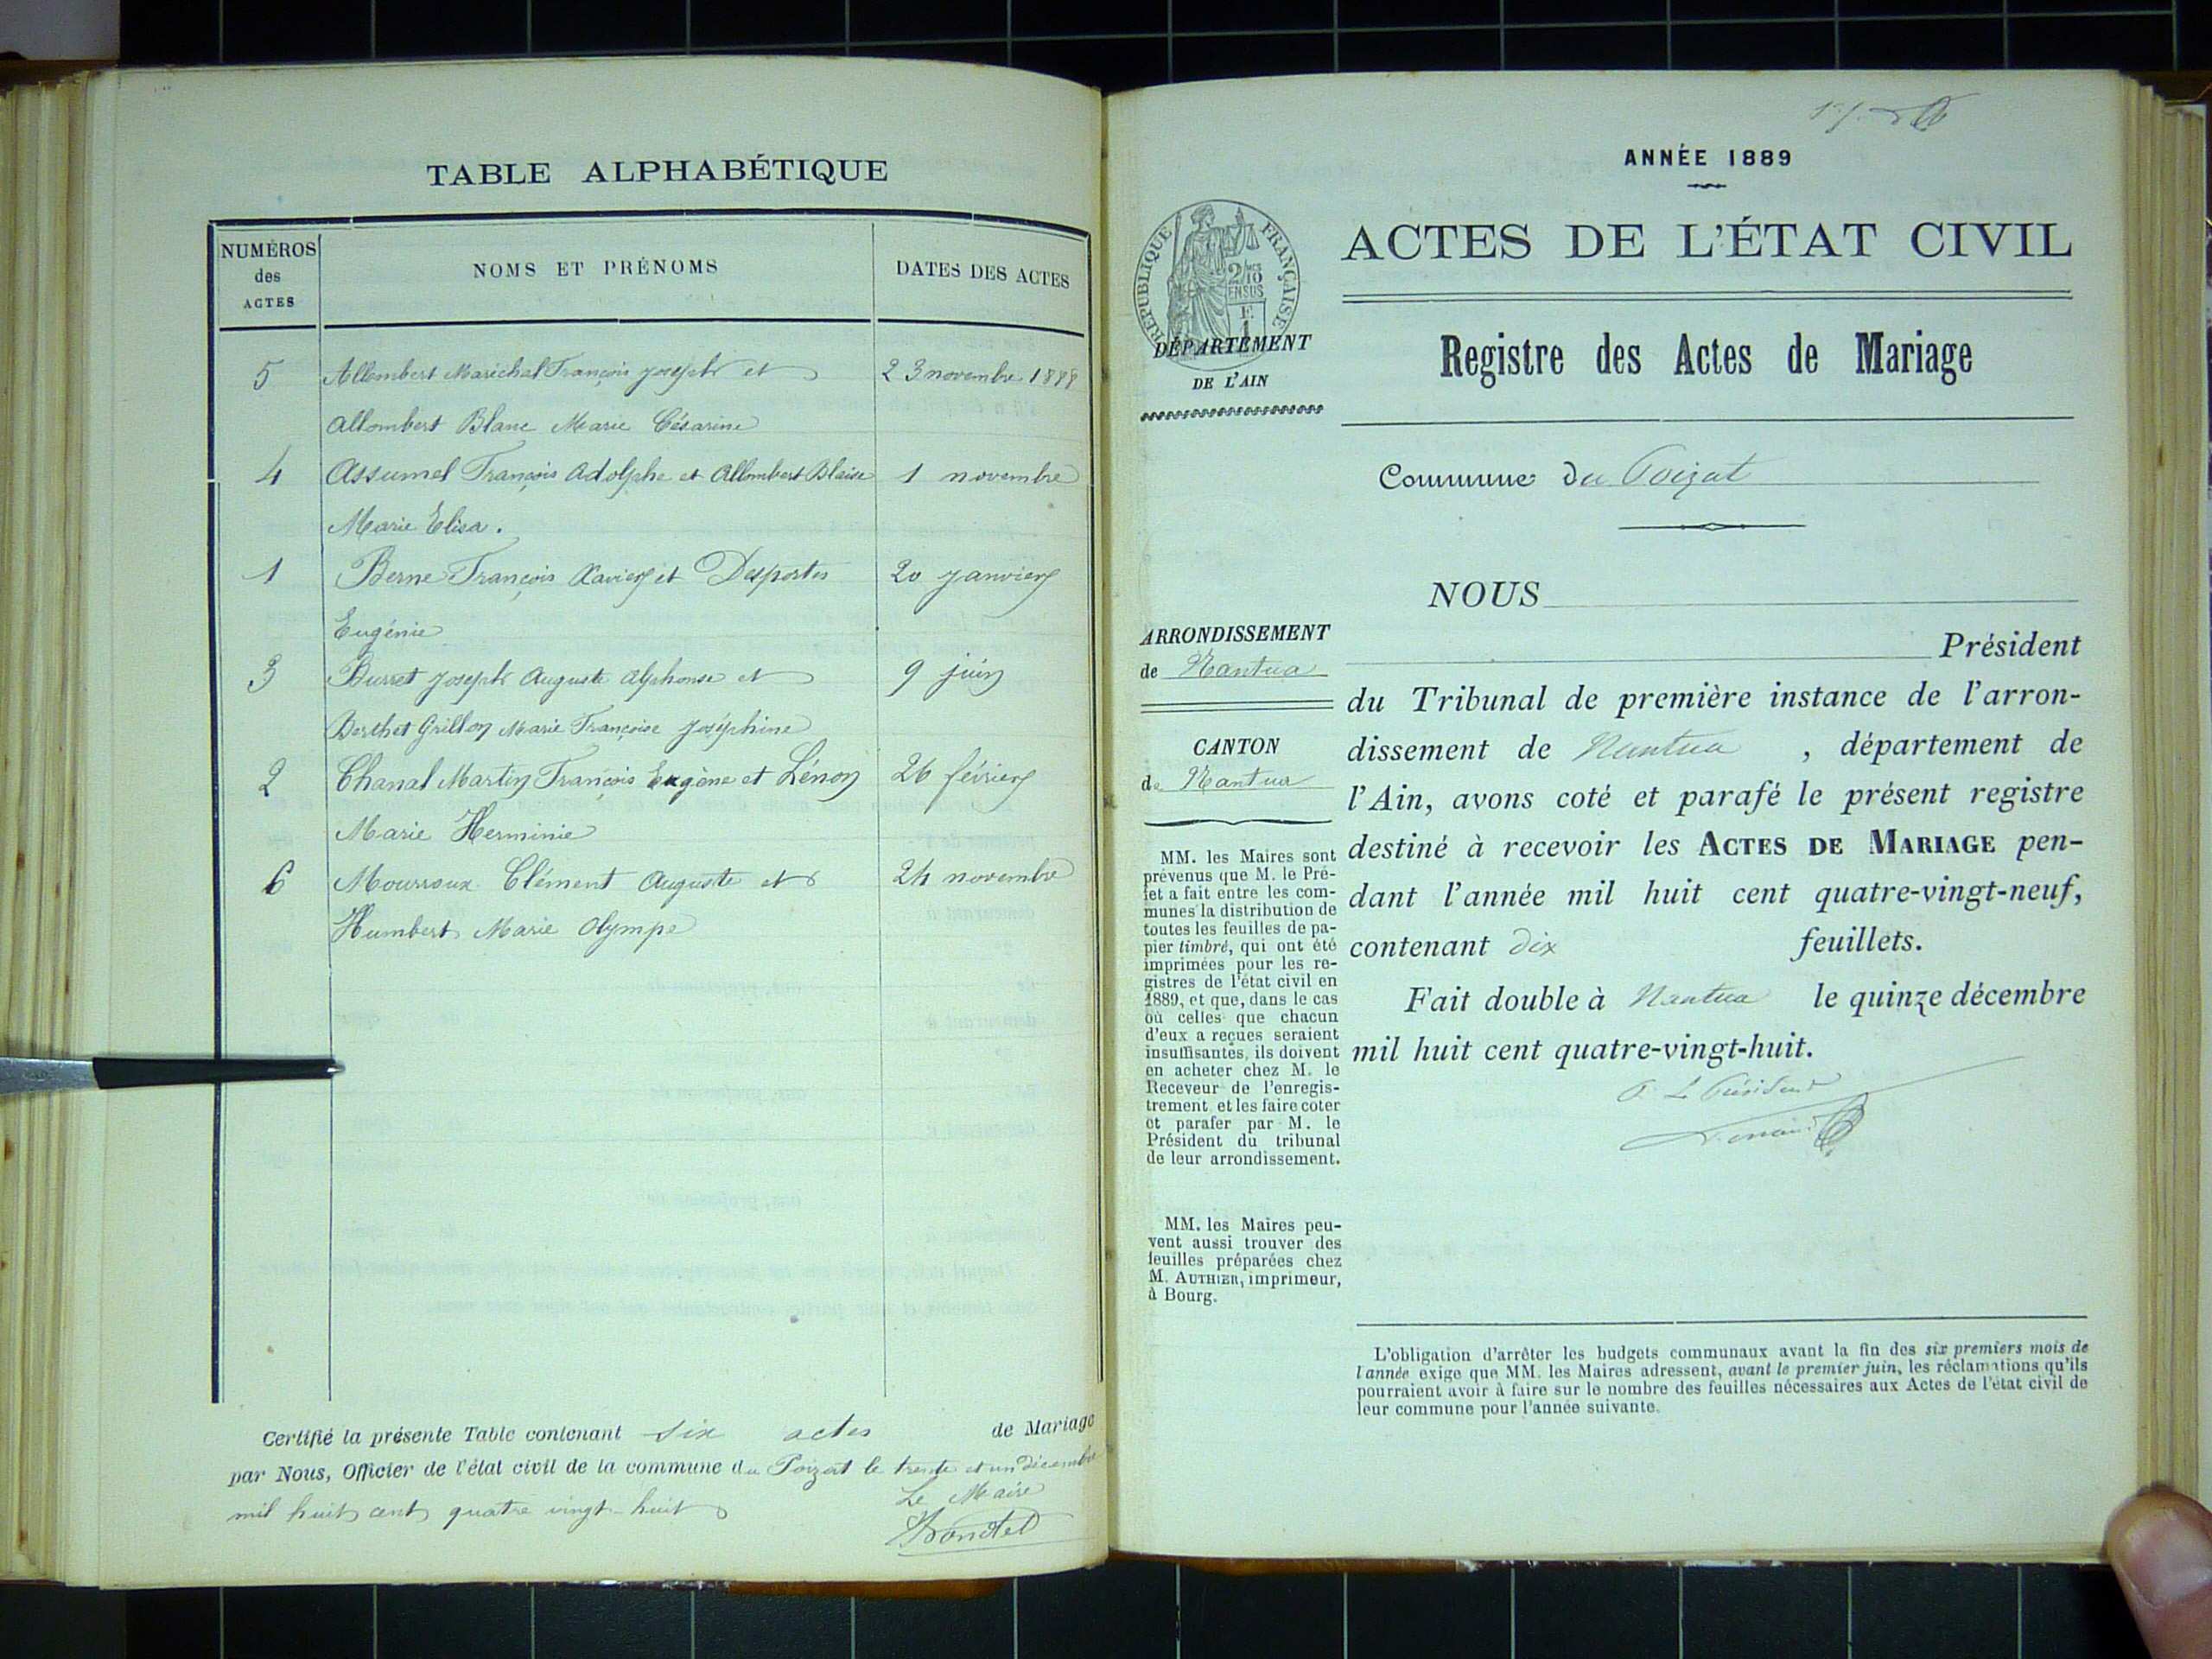 TABLE ALPHABÉTIQUE
NUMÉROS
des
ACTES
NOMS ET PRÉNOMS
DATES DES ACTES
5 Allombert Maréchal François Joseph et 23 novembre 1888
Allombert Blanc Marie Césarine
4 Assumel François Adolphe et Allombert Blaise 1 novembre
Marie Elisa.
1 Berne François Xavier et Desportes 20 janvier
Eugénie
3 Burret Joseph Auguste Alphonse et 9 juin
Berthet Grillon Marie Françoise Joséphine
2 Chanal Martin François Eugène et Lénon 26 février
Marie Herminie
6 Mourroux Clément Auguste et 24 novembre
Humbert Marie Olympe
Certifié la présente Table contenant six actes de Mariage
par Nous, Officier de l'état civil de la commune du Poizat le trente et un décembre
mil huit cent quatre vingt-huit
Le Maire
ANNÉE 1889
ACTES DE L'ÉTAT CIVIL
RÉPUBLIQUE FRANÇAISE
2/10
EN SUS
F.
1
DÉPARTEMENT
DE L'AIN
Registre des Actes de Mariage
Commune du Poizat
NOUS
ARRONDISSEMENT
de Nantua
CANTON
de Nantua
Président
du Tribunal de première instance de l'arron-
dissement de Nantua , département de
l'Ain, avons coté et parafé le présent registre
destiné à recevoir les ACTES DE MARIAGE pen-
dant l'année mil huit cent quatre-vingt-neuf,
contenant dix feuillets.
Fait double à Nantua le quinze décembre
mil huit cent quatre-vingt-huit.
P. Le Président
MM. les Maires sont
prévenus que M. le Pré-
fet a fait entre les com-
munes la distribution de
toutes les feuilles de pa-
pier timbré, qui ont été
imprimées pour les re-
gistres de l'état civil en
1889, et que, dans le cas
où celles que chacun
d'eux a reçues seraient
insuffisantes, ils doivent
en acheter chez M. le
Receveur de l'enregis-
trement et les faire coter
et parafer par M. le
Président du tribunal
de leur arrondissement.
MM. les Maires peu-
vent aussi trouver des
feuilles préparées chez
M. AUTHIER, imprimeur,
à Bourg.
L'obligation d'arrêter les budgets communaux avant la fin des six premiers mois de
l'année exige que MM. les Maires adressent, avant le premier juin, les réclamations qu'ils
pourraient avoir à faire sur le nombre des feuilles nécessaires aux Actes de l'état civil de
leur commune pour l'année suivante.